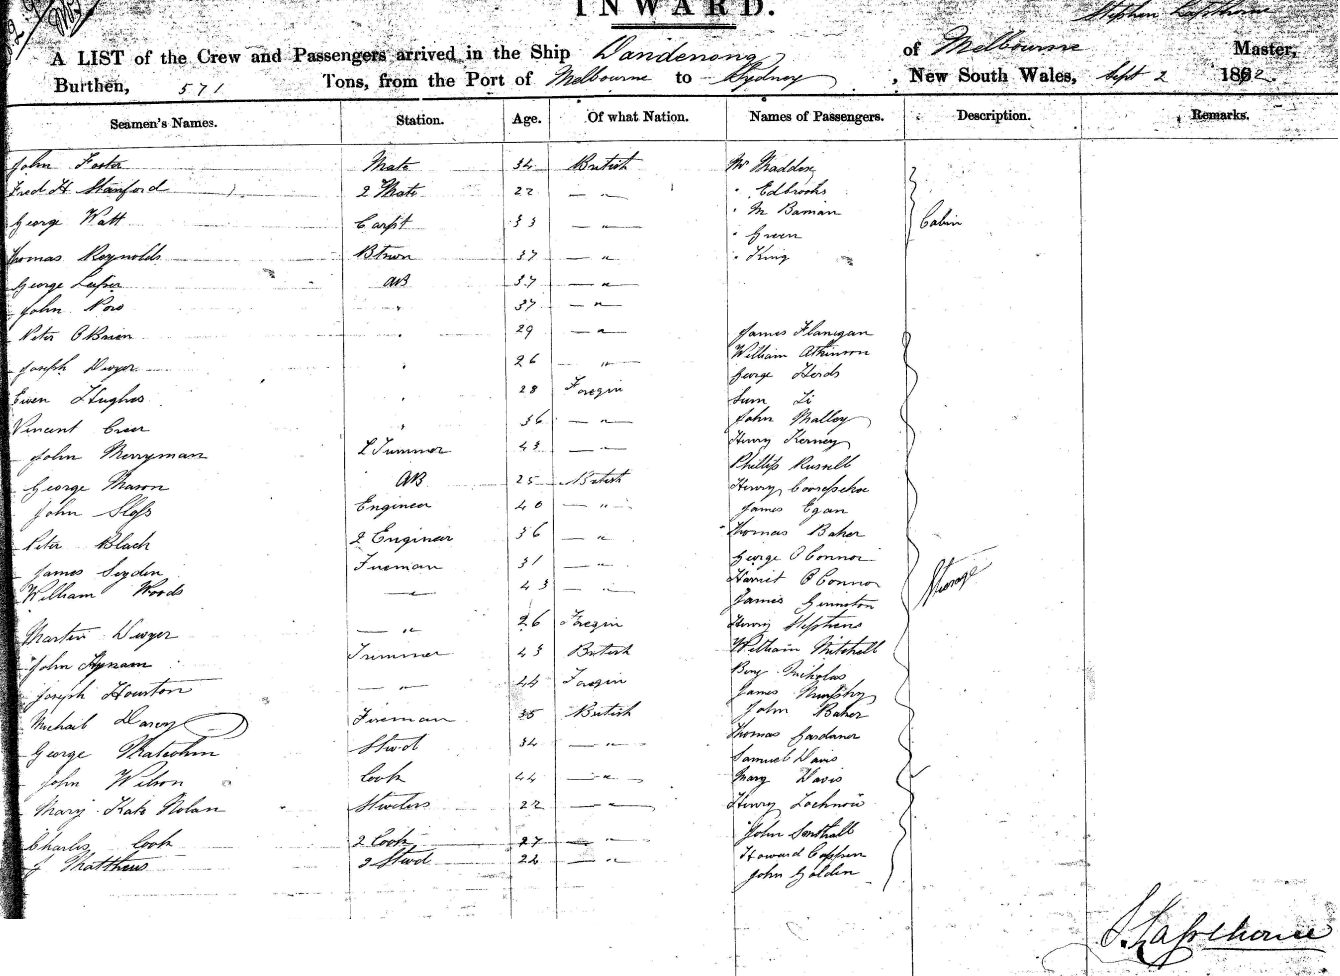 INWARD.
Stephen Lapthorne
A LIST of the Crew and Passengers arrived in the Ship Dandenong of Melbourne Master,
Burthen, 571 Tons, from the Port of Melbourne to Sydney, New South Wales, Sept 2 1862.
Seamen's Names. Station. Age. Of what Nation. Names of Passengers. Description. Remarks.
John Foster Mate 34 British Mr Maddox
Fred H Stanford 2 Mate 22 — " — " Edbrooks
" McBaman
George Watt Carpt 33 — " — Cabin
" Green
Thomas Reynolds Btswn 37 — " " King
George AB 37 — " —
John Row " 37 — " —
Peter O'Brien " 29 — " — James Flanigan
Joseph Dwyer " 26 — " — William Atkinson
George Herds
Ewen Hughes " 28 Foregin Sum Li
Vincent Creer " 36 — " — John Malloy
John Merryman Trimmer 43 — " — Henry Kerney
Phillip Russell
George Mason AB 25 British Henry
John Sloss Engineer 40 — " — James Egan
Peter Black 2 Engineer 36 — " Thomas Baker
James Soyden Fireman 31 — " — George O'Connor
William Woods — " — 43 — " Harriet O'Connor
James
Steerage
Martin Dwyer — " 26 Foregin Henry Stephens
John Hynam Trimmer 43 British William Mitchell
Joseph Houston — " 44 Foregin Benj Nicholas
James Murphy
Michail Darcy Fireman 35 British John Baker
George Malcolm Stwd 34 — " — Thomas Gardiner
Samuel Davis
John Wilson Cook 44 — " — Mary Davis
Mary Kate Nolan Stwdess 22 — " — Henry
Charles Cook 2 Cook 27 — " — John Southall
J Matthews 2 Stwd 22 — " Howard
John Golden
S. Lapthorne